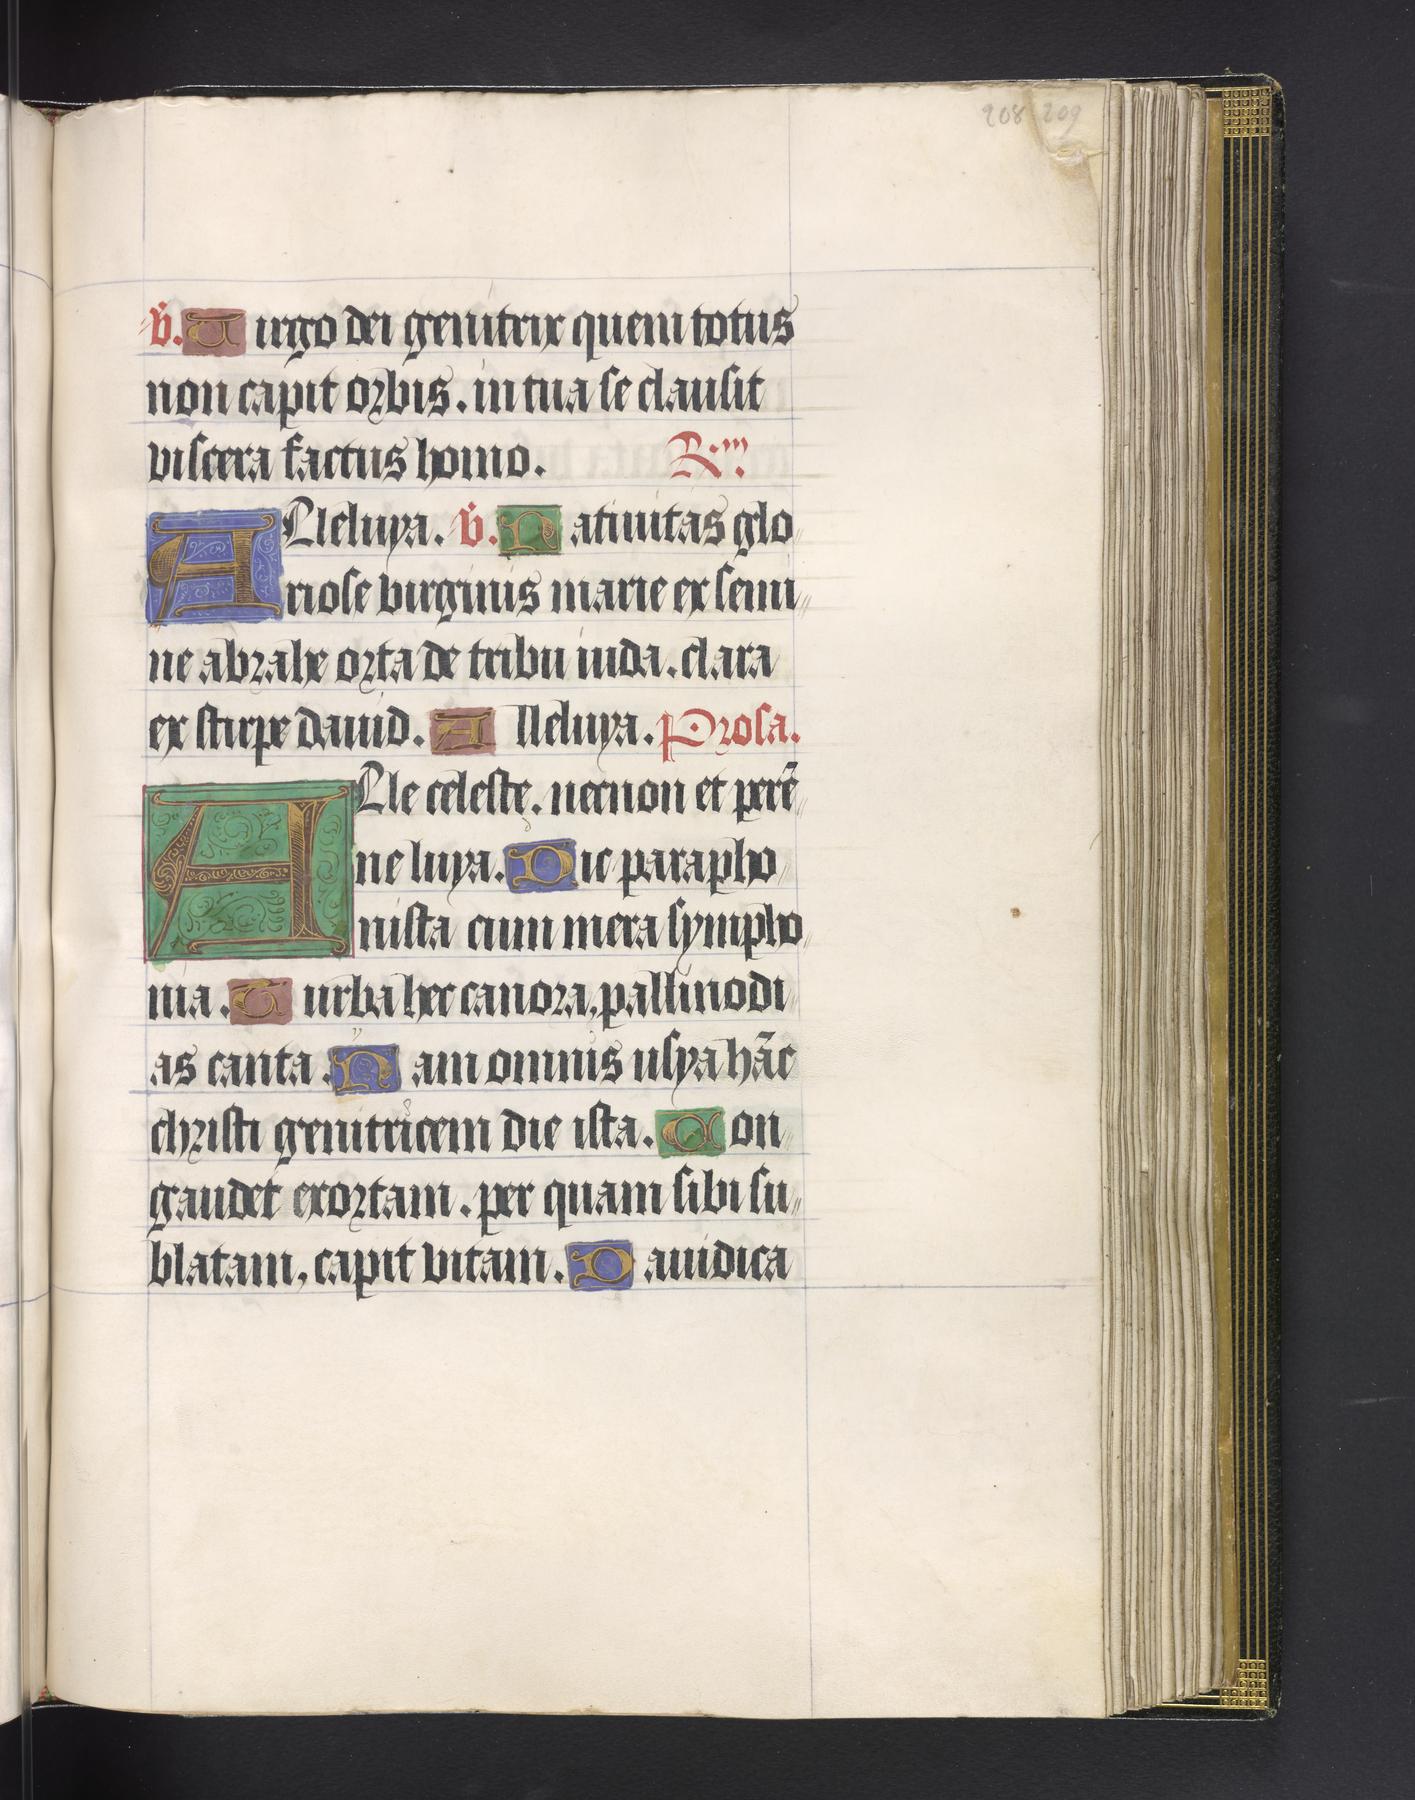 208 209
V̄. Uirgo dei genitrix quem totus
non capit orbis. in tua se clausit
viscera factus homo. R.
ALleluya. V̄. Natiuitas glo
riose virginis marie ex semi
ne abrahe orta de tribu iuda. clara
ex stirpe dauid. Alleluya. Prosa.
ALle celeste. necnon et perē
ne luya. Dic parapho
nista cum mera sympho
nia. Turba hec canora, pallinodi
as canta. Nam omnis usya hāc
christi genitricem die ista. Con
gaudet exortam. per quam sibi su
blatam, capit vitam. Dauidica